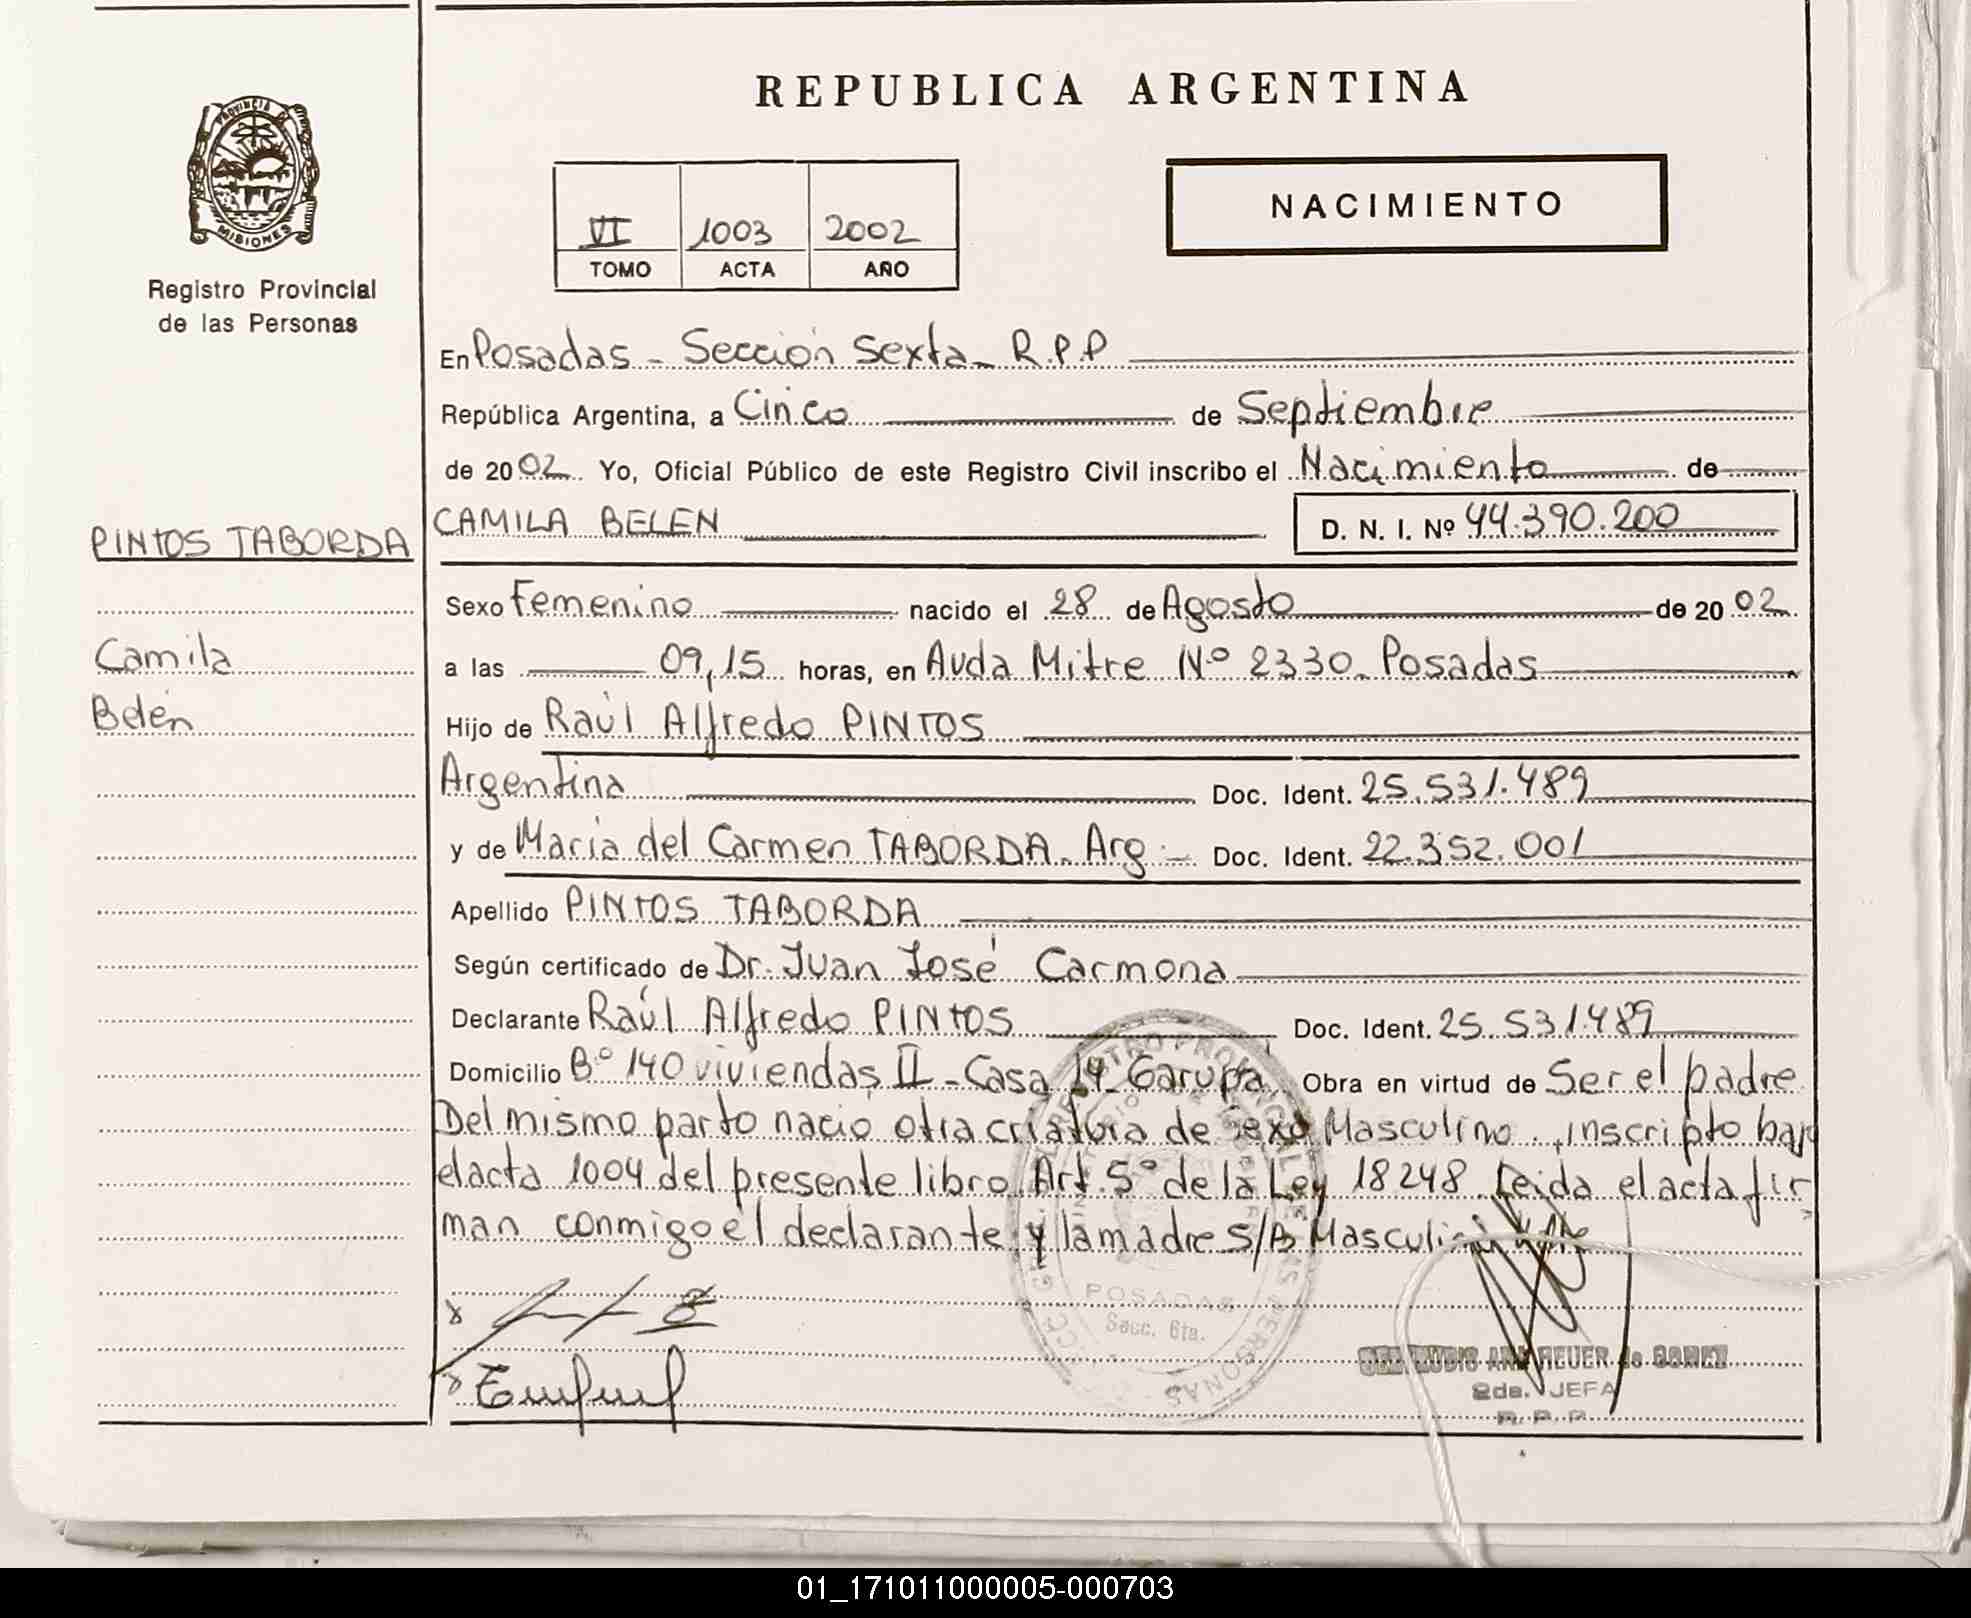 PROVINCIA DE
MISIONES
Registro Provincial
de las Personas
REPUBLICA ARGENTINA
VI 1003 2002
TOMO ACTA AÑO
NACIMIENTO
En Posadas - Sección Sexta - R.P.P
República Argentina, a Cinco de Septiembre
de 2002 Yo, Oficial Público de este Registro Civil inscribo el Nacimiento de
PINTOS TABORDA
Camila
Belén
CAMILA BELEN D. N. I. Nº 44.390.200
Sexo Femenino nacido el 28 de Agosto de 2002
a las 09,15 horas, en Avda Mitre Nº 2330. Posadas
Hijo de Raúl Alfredo PINTOS
Argentina Doc. Ident. 25.531.489
y de María del Carmen TABORDA. Arg.- Doc. Ident. 22.352.001
Apellido PINTOS TABORDA
Según certificado de Dr. Juan José Carmona
Declarante Raúl Alfredo PINTOS Doc. Ident. 25.531.489
Domicilio Bº 140 viviendas II - Casa 14 - Garupá Obra en virtud de Ser el padre
Del mismo parto nació otra criatura de sexo Masculino, inscripto bajo
el acta 1004 del presente libro Art. 5º de la Ley 18248. Leida el acta fir
man conmigo el declarante y la madre S/B Masculino Vale
POSADAS
Secc. 6ta.
de GOMEZ
2da. JEFA
R. P. P.
01_171011000005-000703